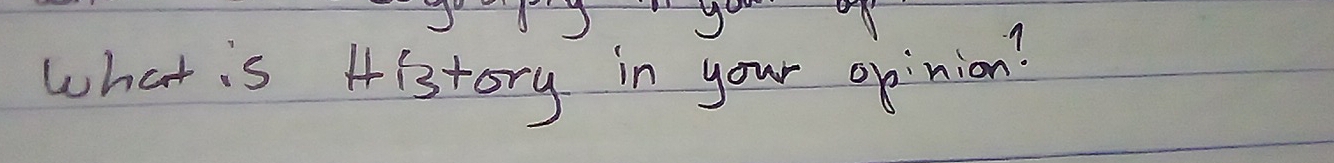 What is History in your opinion?